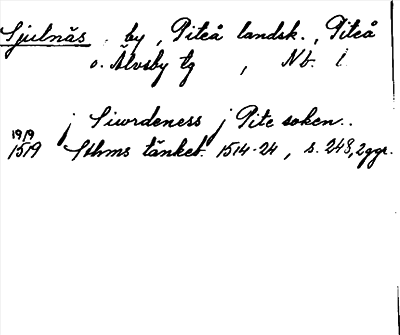 Sjulnäs, by, Piteå landsk., Piteå
o. Älvsby tg, Nb. l.
j Siwrdeness j Pite soken..
19/9
1519 Sthms tänkeb. 1514-24, s. 248, 2 ggr.